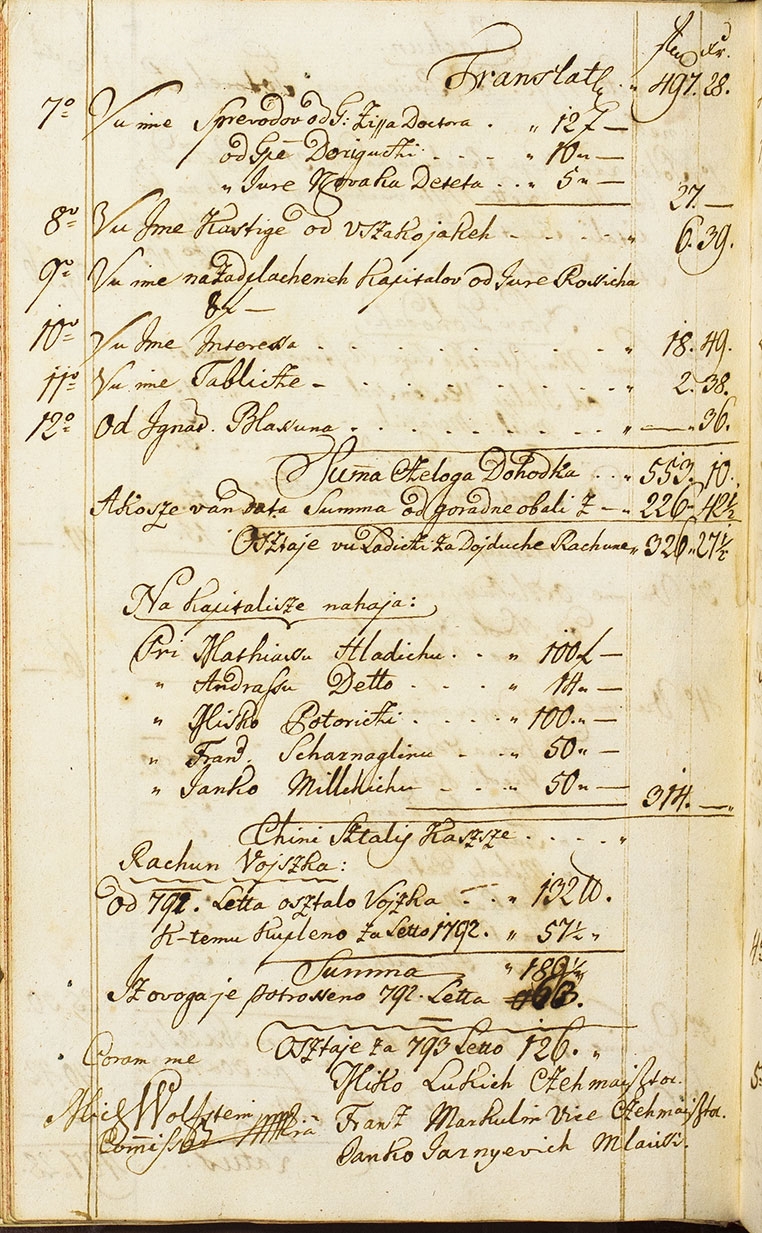 flor xr.
Translat " 497. 28.
7º Vu ime Sprevodov od G: Zissa Doctora . " 12 f —
od Gṗe Doriguthi . . . . " 10 " —
" Jure Novaka Deteta . . " 5 " —
27. —
8º Vu Ime Kastige od vszakojakeh - . . . - . " 6. 39.
9º Vu ime nazadplacheneh Kapitalov od Jure Rossicha
8 f —
10º Vu Ime Interessa . . . . . . . " 18. 49.
11º Vu ime Tablichke - . . . . . . " 2. 38.
12º Od Ignat. Blasuna . . . . . . . . " — " 36.
Suma Czeloga Dohodka . . " 553. 10.
Ako sze van data Summa od goradne obali z — " 226 " 42½
Osztaje vu Ladichi za Dojduche Rachune " 326 " 27½
Na kapitalisze nahaja:
Pri Mathiassu Hladichu . . . " 100 f —
" Andrassu Detto . . . . " 14 " —
" Misko Potorichi . . . . . " 100 " —
" Franc. Scharnaglinu - . . " 50 " —
" Janko Millchichu - . . " 50 " — 314. — "
Chini Sztalij Kaszsze . . . . "
Rachun Vojszka:
Od 792. Letta osztalo Vojzka - . " 132 ℔.
K-temu kupleno za Letto 1792. " 57½ "
Summa " 189½ "
Iz ovoga je potrosseno 792. Letta 63.
Osztaje za 793 Letto 126. "
Coram me
Misko Lukich Czehmaisztor.
Mich Wolfstein mp Franz Markulin Vice Czehmaisztor.
Com̄iss
Janko Jarnyevich Mlaissi.